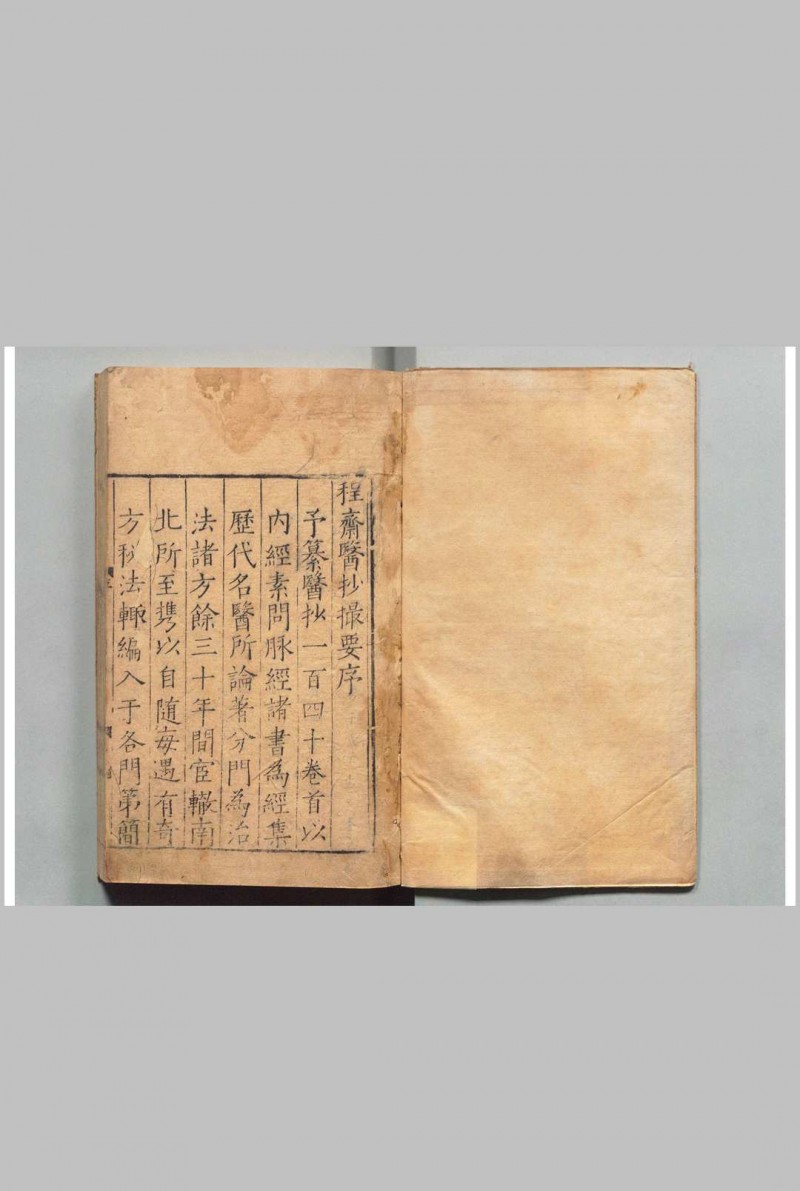 程齋醫抄撮要序
予纂醫抄一百四十卷首以
內經素問脉經諸書為經集
歷代名醫所論著分門為治
法諸方餘三十年間宦轍南
北所至携以自隨每遇有奇
方秘法輙編入于各門第簡